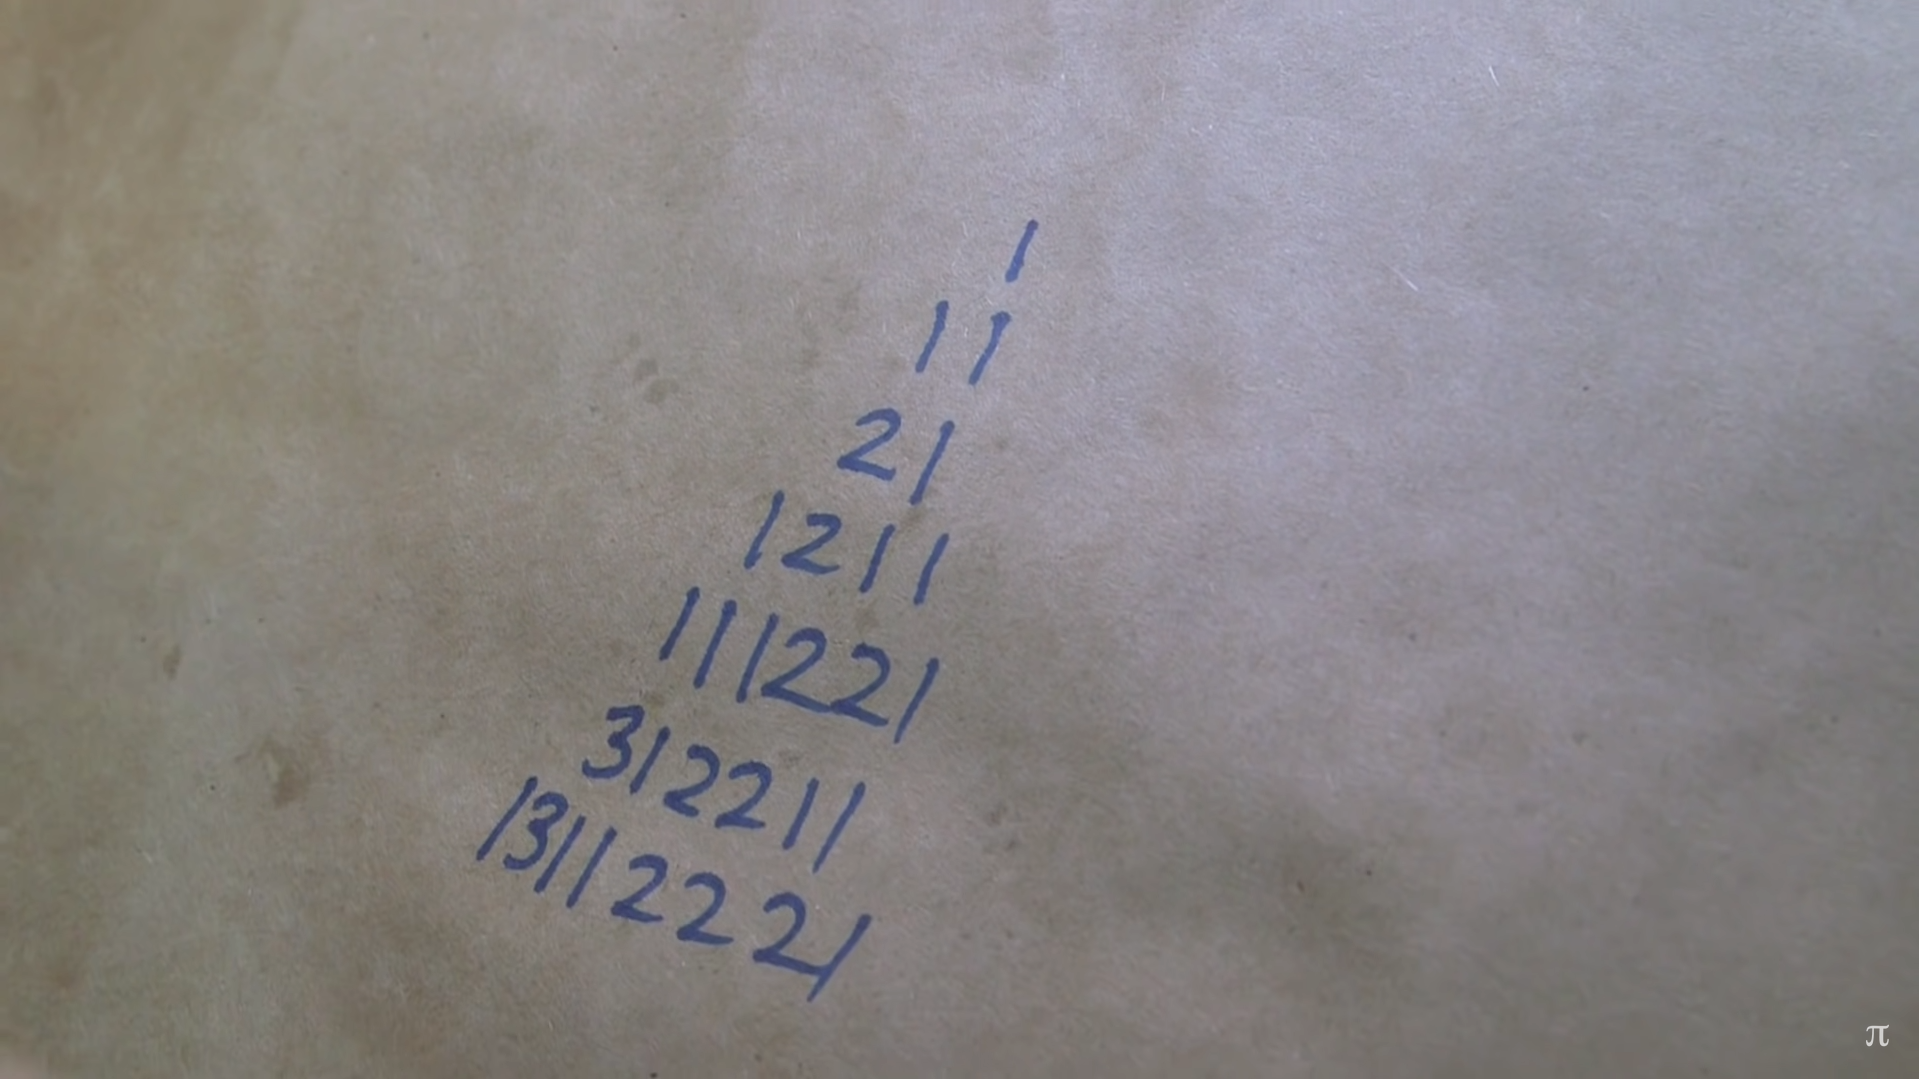 1
11
21
1211
111221
312211
13112221
π